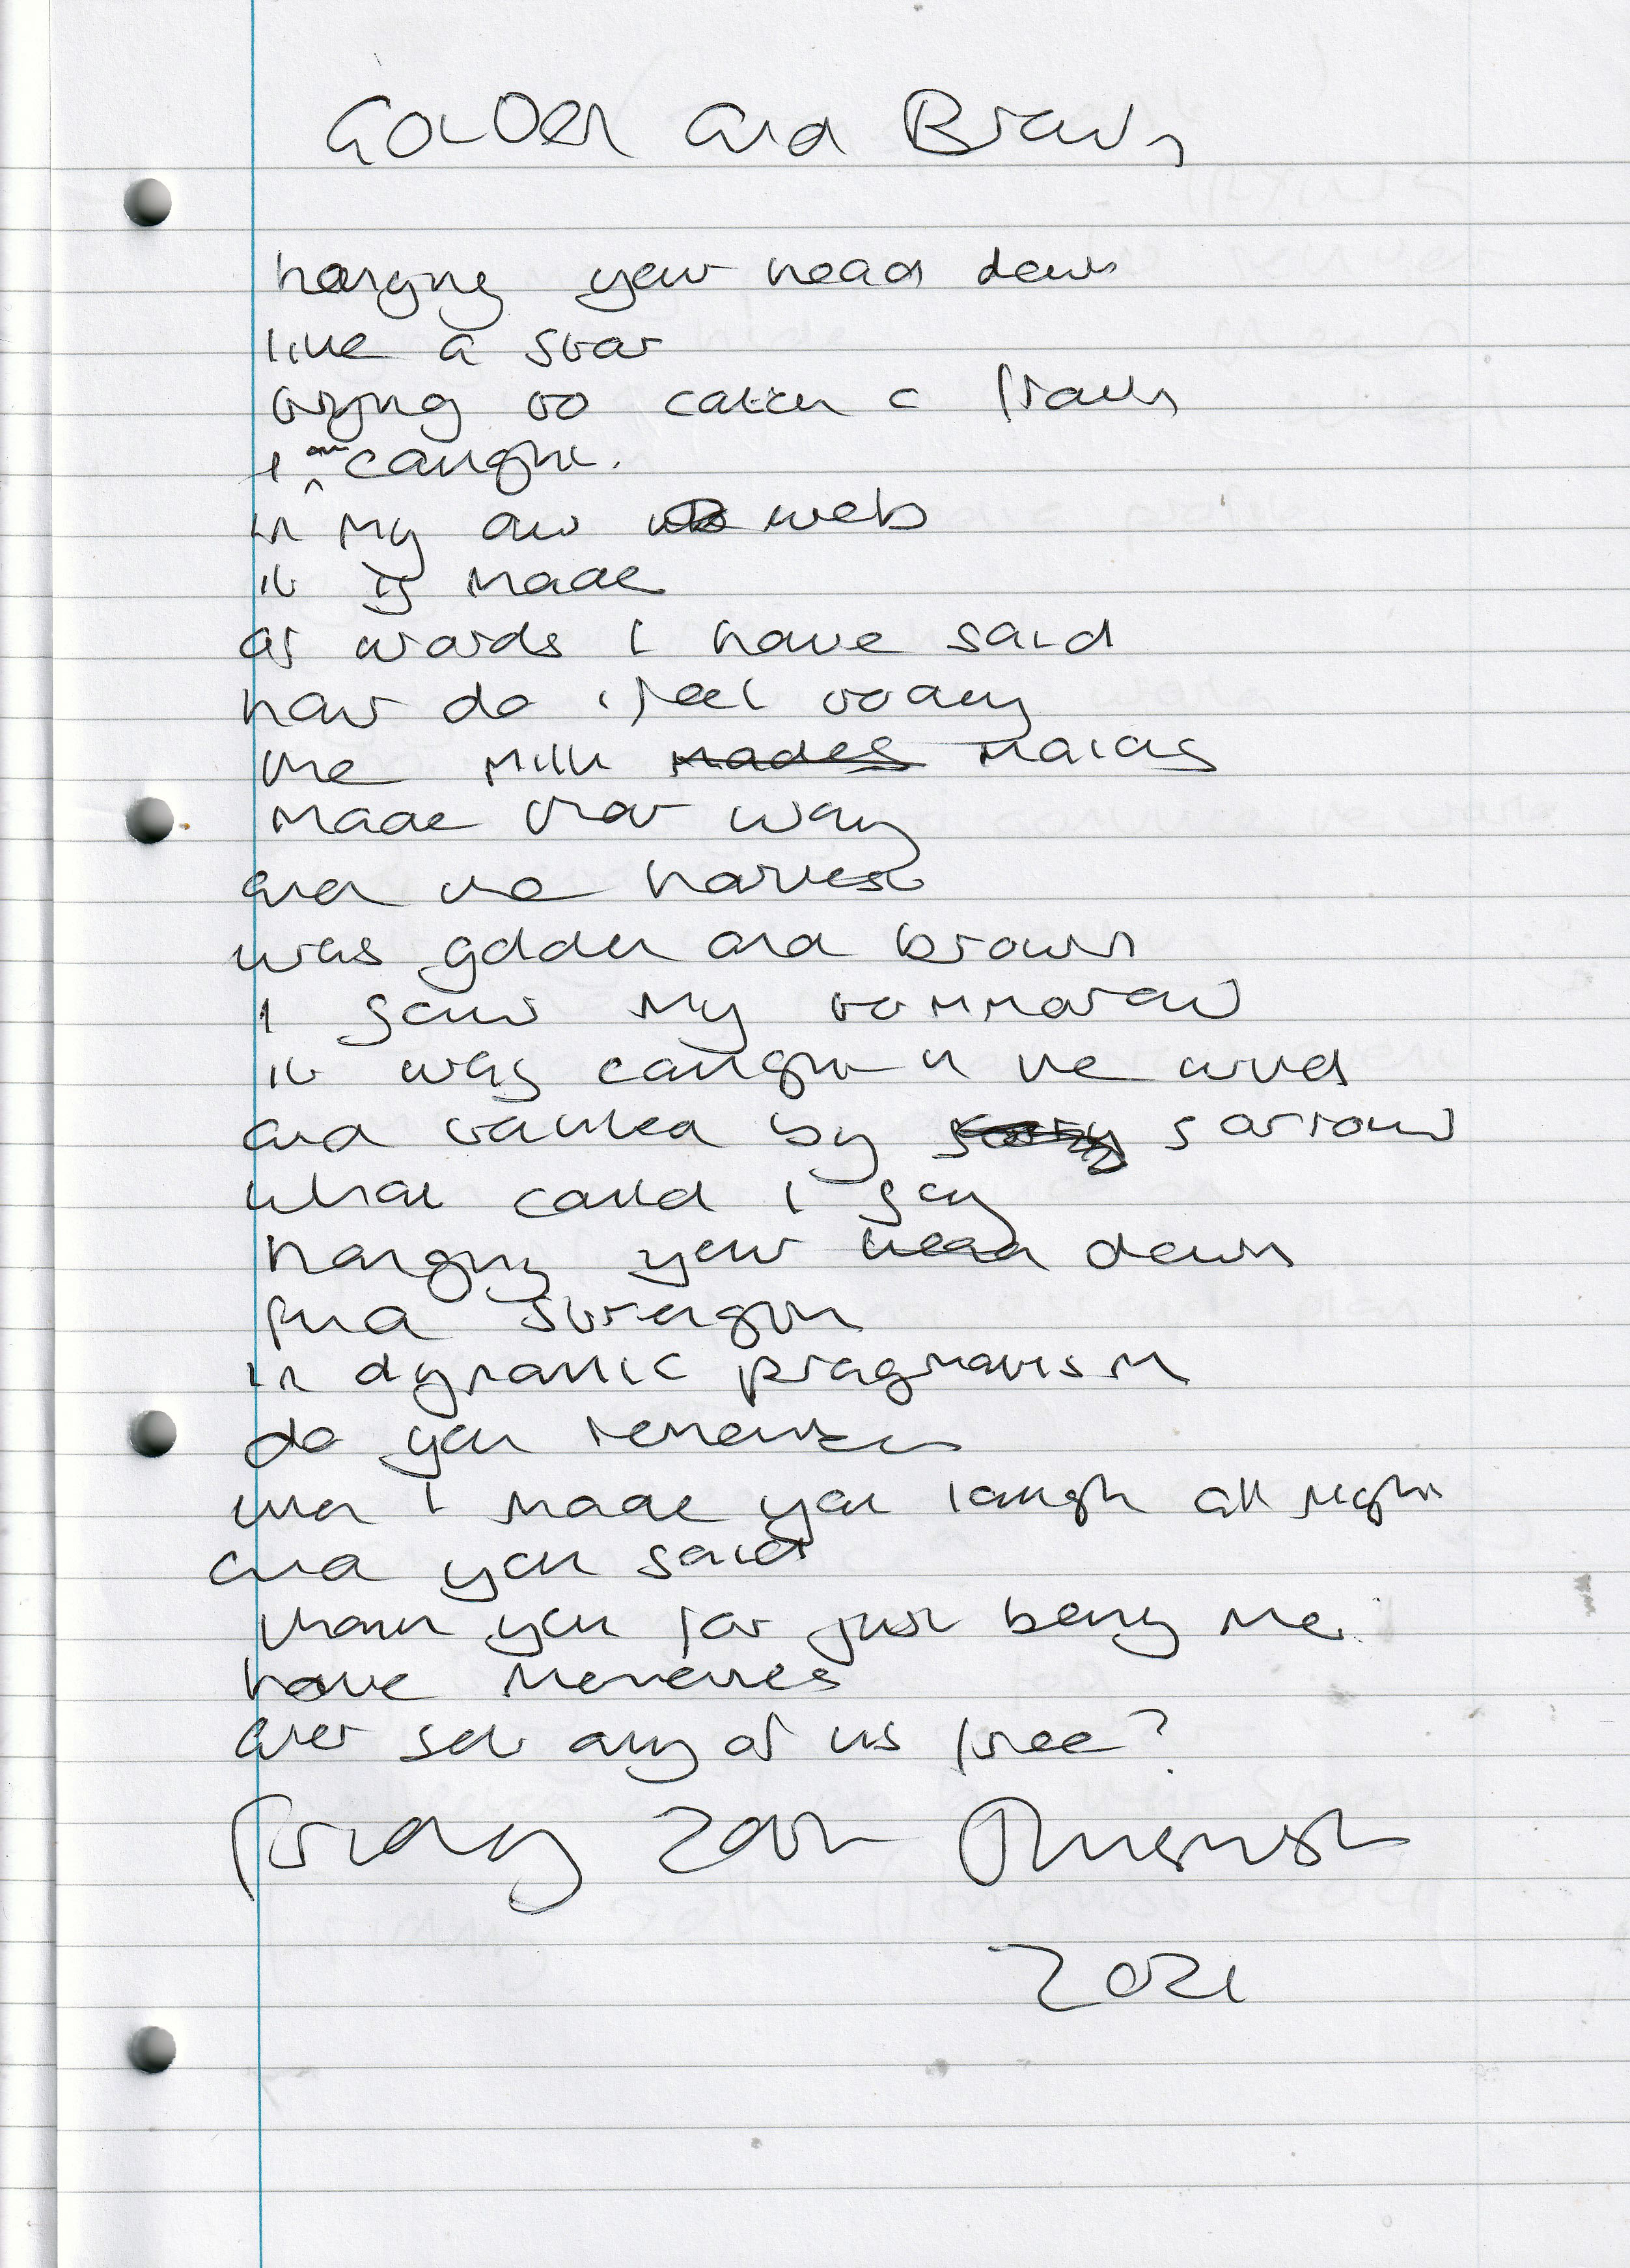 Golden and Brown
hanging your head down
like a star
trying to catch a frown
I am caught.
in my own web
it is made
of words I have said
how do i feel today
the milk mades maids
made that way
and the harvest
was golden and brown
I saw my tommorow
it was caught in the wind
and tainted by sorry sorrow
what could I say
hanging your head down
find strength
in dynamic pragmatism
do you remember
when I made you laugh all night
and you said
thank you for just being me
have memories
ever set any of us free?
Friday
2021